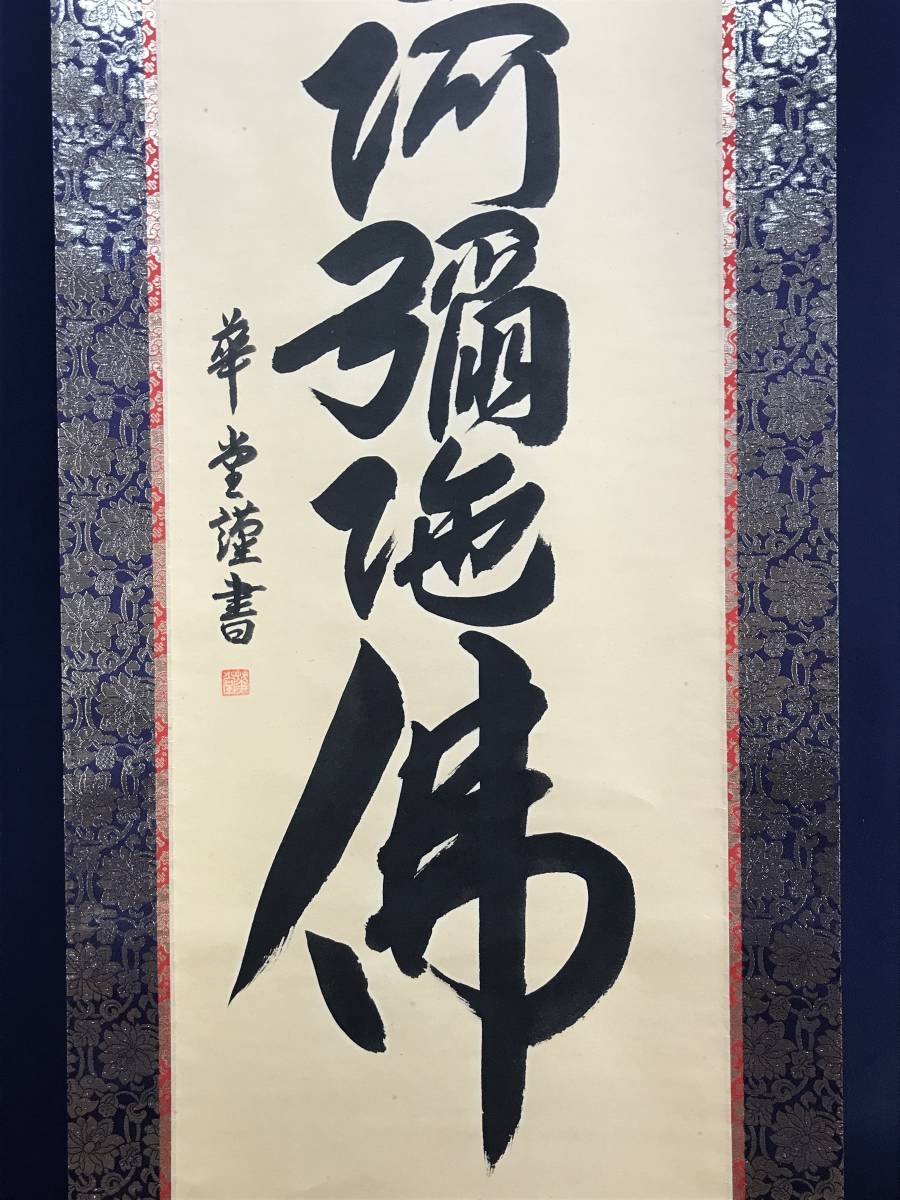 阿彌陀佛
華堂謹書